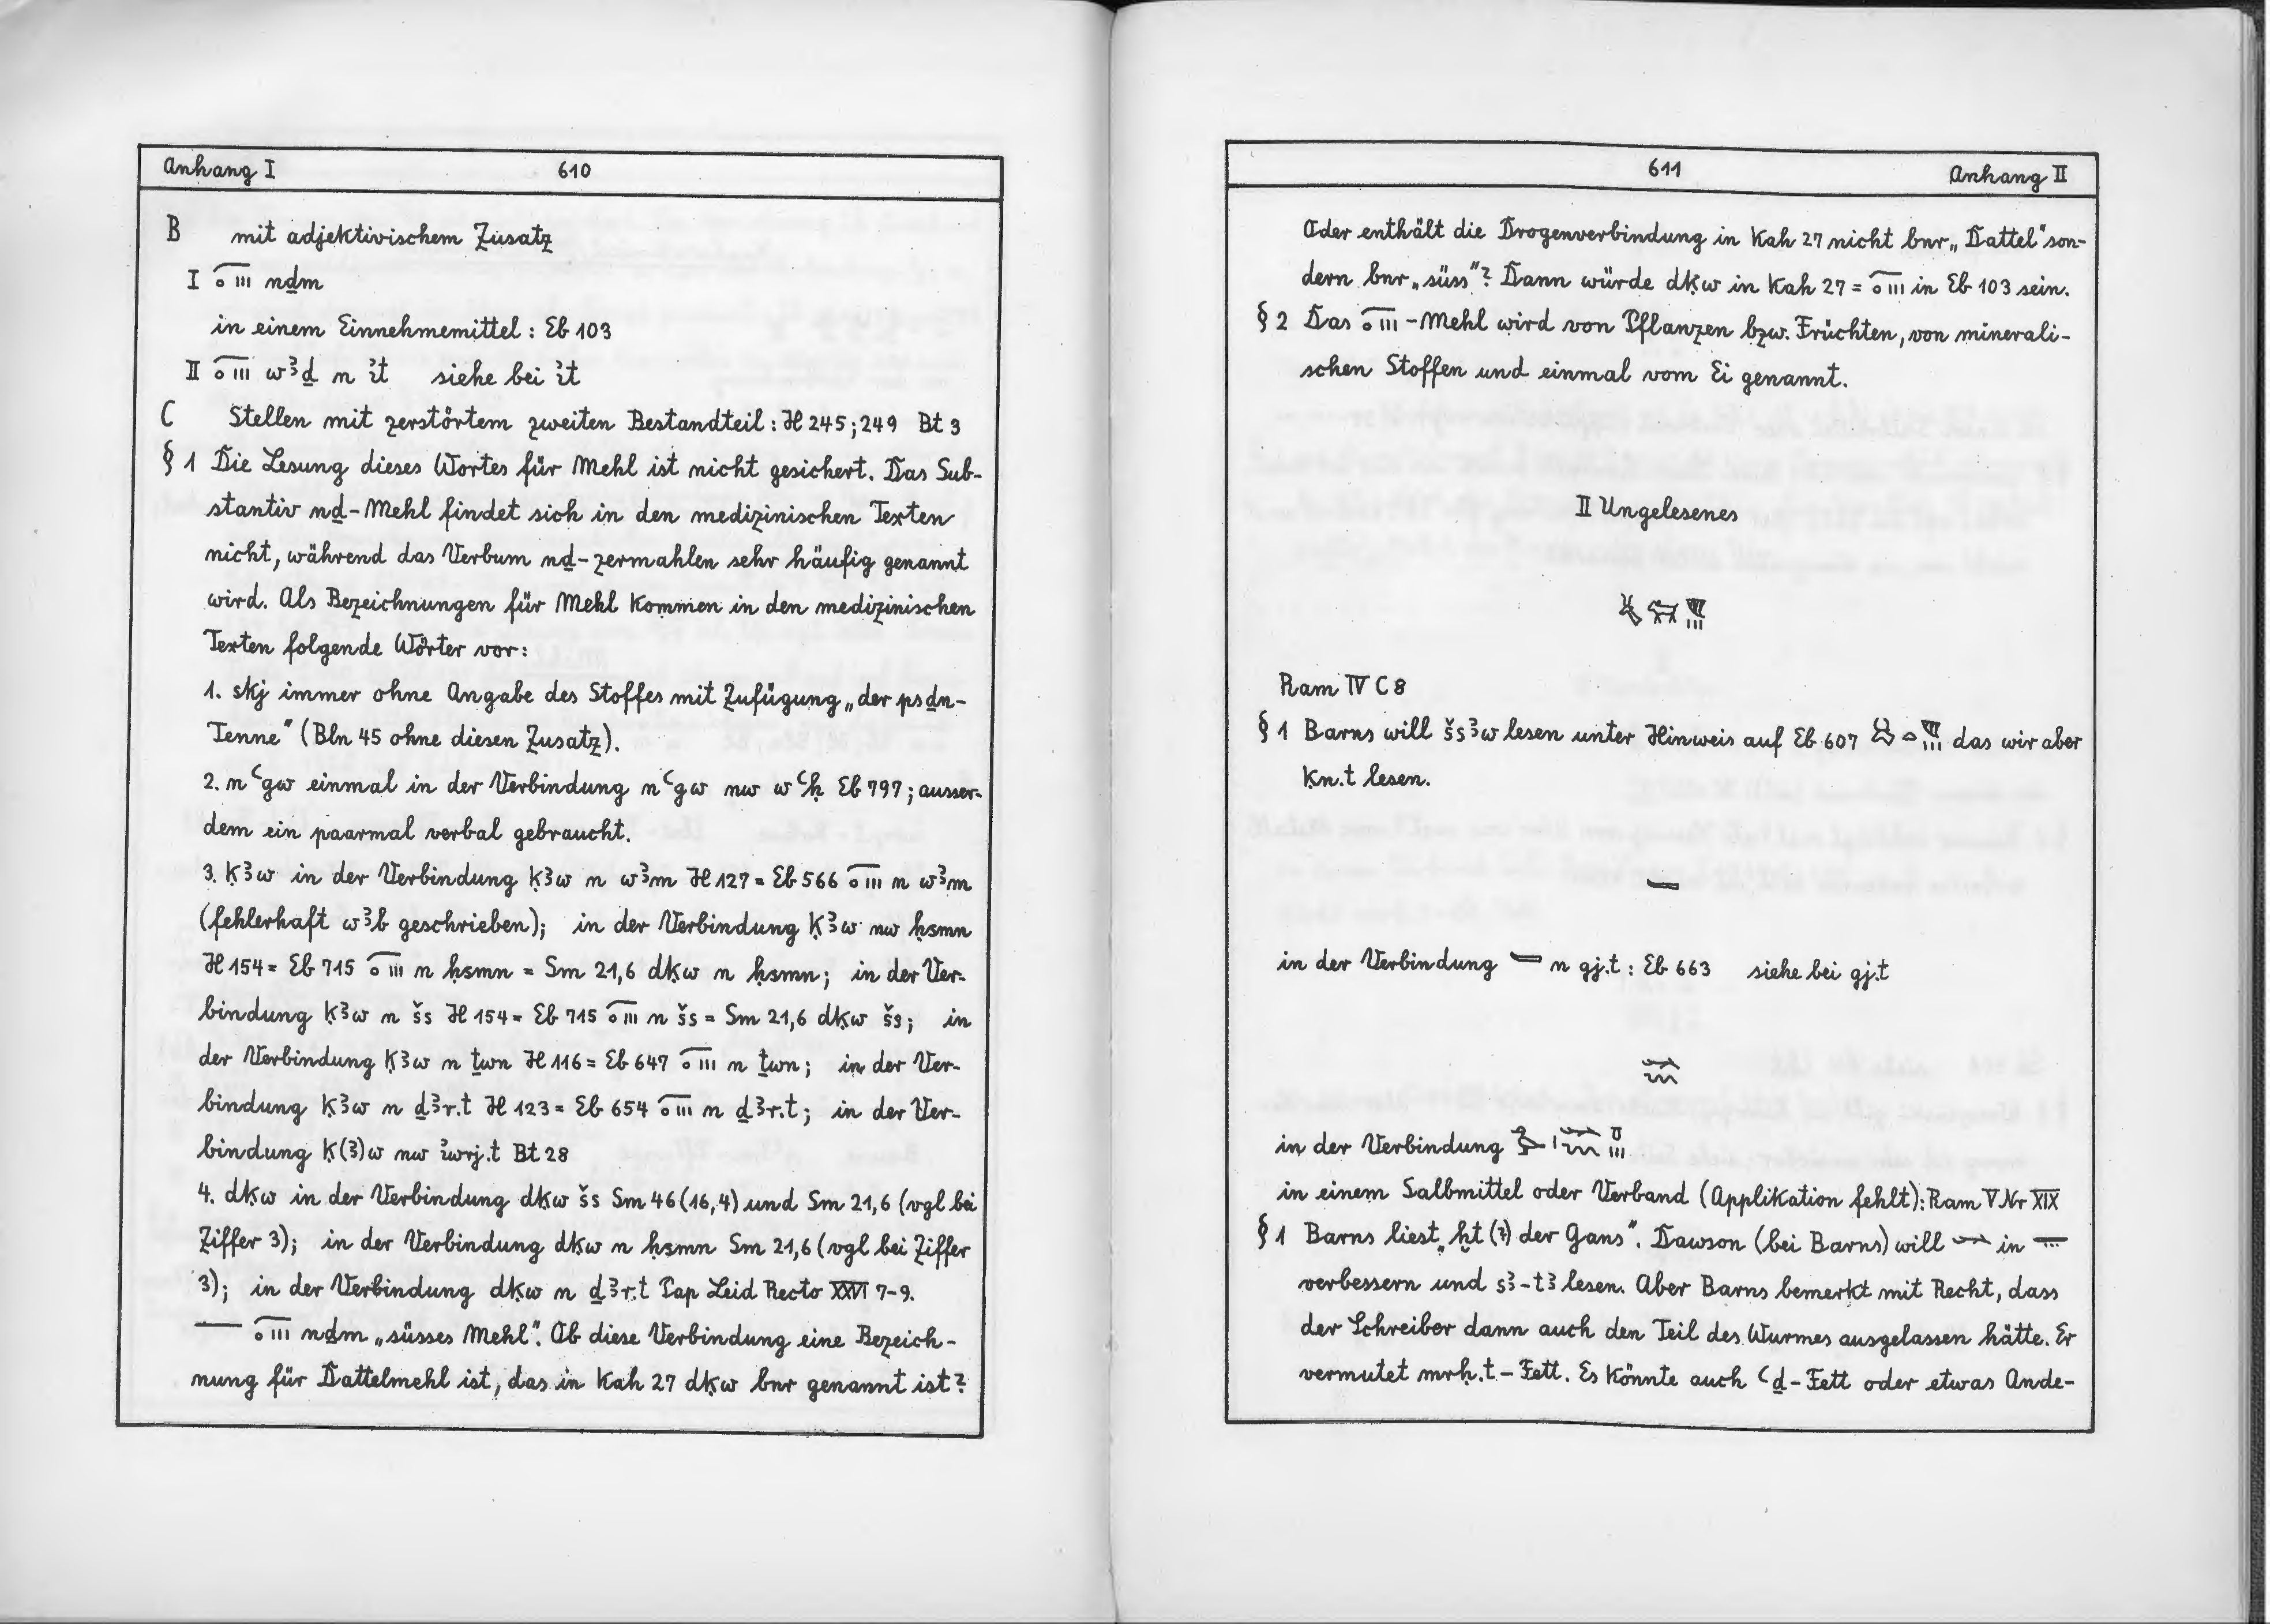 Anhang I 610
B mit adjektivischem Zusatz
I nḏm
in einem Einnehmemittel : Eb 103
II wꜣḏ n ı͗t siehe bei ı͗t
C Stellen mit zerstörtem zweiten Bestandteil : H 245 ; 249 Bt 3
§ 1 Die Lesung dieses Wortes für Mehl ist nicht gesichert. Das Sub-
stantiv nḏ-Mehl findet sich in den medizinischen Texten
nicht, während das Verbum nḏ-zermahlen sehr häufig genannt
wird. Als Bezeichnungen für Mehl kommen in den medizinischen
Texten folgende Wörter vor :
1. skj immer ohne Angabe des Stoffes mit Zufügung „der psḏn-
Tenne" (Bln 45 ohne diesen Zusatz).
2. nꜥgw einmal in der Verbindung nꜥgw nw wꜥḥ Eb 797 ; ausser-
dem ein paarmal verbal gebraucht.
3. ḳꜣw in der Verbindung ḳꜣw n wꜣm H 127 = Eb 566 n wꜣm
(fehlerhaft wꜣb geschrieben); in der Verbindung ḳꜣw nw ḥsmn
H 154 = Eb 715 n ḥsmn = Sm 21,6 dḳw n ḥsmn ; in der Ver-
bindung ḳꜣw n šs H 154 = Eb 715 n šs = Sm 21,6 dḳw šs ; in
der Verbindung ḳꜣw n ṯwn H 116 = Eb 647 n ṯwn ; in der Ver-
bindung ḳꜣw n ḏꜣr.t H 123 = Eb 654 n ḏꜣr.t ; in der Ver-
bindung ḳ(ꜣ)w nw ı͗wrj.t Bt 28
4. dḳw in der Verbindung dḳw šs Sm 46 (16,4) und Sm 21,6 (vgl bei
Ziffer 3); in der Verbindung dḳw n ḥsmn Sm 21,6 (vgl bei Ziffer
3); in der Verbindung dḳw n ḏꜣr.t Pap Leid Recto XXVI 7-9.
— nḏm „süsses Mehl". Ob diese Verbindung eine Bezeich-
nung für Dattelmehl ist, das in Kah 27 dḳw bnr genannt ist ?
611 Anhang II
Oder enthält die Drogenverbindung in Kah 27 nicht bnr „Dattel" son-
dern bnr „süss" ? Dann würde dḳw in Kah 27 = in Eb 103 sein.
§ 2 Das -Mehl wird von Pflanzen bzw. Früchten, von minerali-
schen Stoffen und einmal vom Ei genannt.
II Ungelesenes
Ram IV C 8
§ 1 Barns will šsꜣw lesen unter Hinweis auf Eb 607 das wir aber
ḳn.t lesen.
in der Verbindung n gj.t : Eb 663 siehe bei gj.t
in der Verbindung
in einem Salbmittel oder Verband (Applikation fehlt) : Ram V Nr XIX
§ 1 Barns liest „ḫt (?) der Gans". Dawson (bei Barns) will in
verbessern und sꜣ-tꜣ lesen. Aber Barns bemerkt mit Recht, dass
der Schreiber dann auch den Teil des Wurmes ausgelassen hätte. Er
vermutet mrḥ.t-Fett. Es könnte auch ꜥḏ-Fett oder etwas Ande-